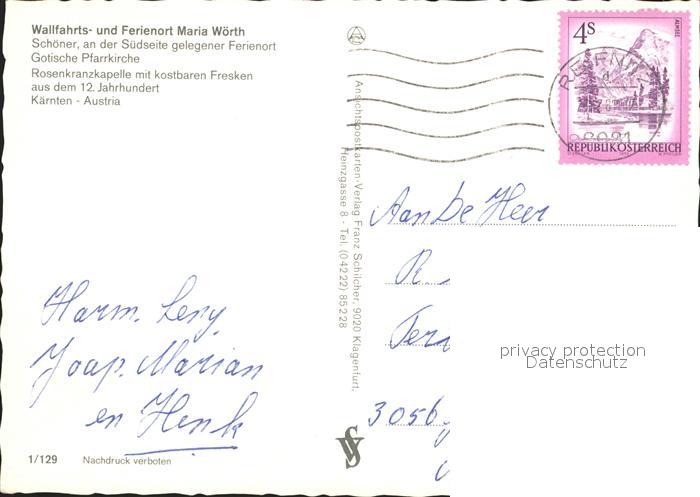 Wallfahrts- und Ferienort Maria Wörth
Schöner, an der Südseite gelegener Ferienort
Gotische Pfarrkirche
Rosenkranzkapelle mit kostbaren Fresken
aus dem 12. Jahrhundert
Kärnten - Austria
4S
ALMSEE
REPUBLIK ÖSTERREICH
Ansichtspostkarten-Verlag Franz Schilcher, 9020 Klagenfurt,
Heinzgasse 8 - Tel. (04222) 85228
Aan De Heer
R.
3056
Harm. Leny.
Joap. Marian
en Henk
privacy protection
Datenschutz
1/129 Nachdruck verboten